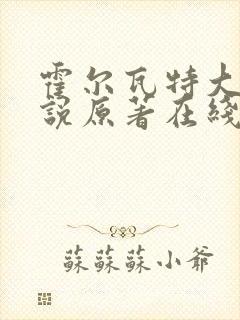 霍尔瓦特大
説原著在綫
蘇蘇蘇小爺